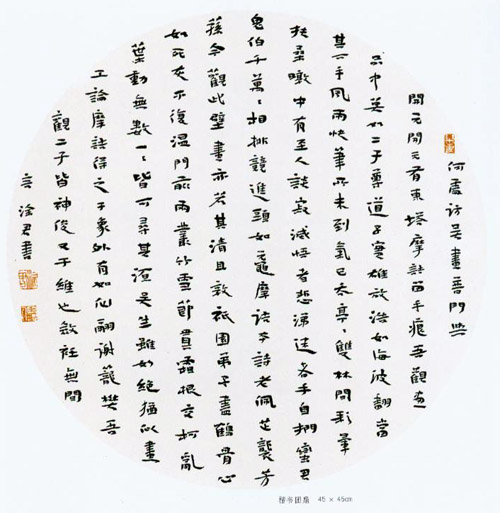 何處訪吳畫普門與
開元開元有東塔摩詰留手痕吾觀畫
品中莫如二子尊道子實雄放浩如海波翻當
其下手風雨快筆所未到氣已吞亭〻雙林間彩暈
扶桑暾中有至人談寂滅悟者悲涕迷者手自捫蠻君
鬼伯千萬〻相排競進頭如黿摩詰本詩老佩芷襲芳
蓀今觀此壁畫亦若其清且敦祇園弟子盡鶴骨心
如死灰不復溫門前兩叢竹雪節貫霜根交柯亂
葉動無數一〻皆可尋其源吳生雖妙絕猶以畫
工論摩詰得之于象外有如仙翮謝籠樊吾
觀二子皆神俊又于維也斂衽無間
言 淦君書
楷书团扇 45 × 45cm